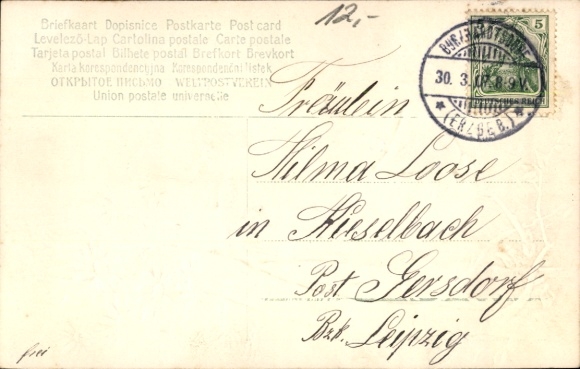 Briefkaart Dopisnice Postkarte Post card
Levelező-Lap Cartolina postale Carte postale
Tarjeta postal Bilhete postal Brefkort Brevkort
Karta korespondencyjna Korespondenční lístek
ОТКРЫТОЕ ПИСЬМО WELTPOSTVEREIN
Union postale universelle
12,-
5
DEUTSCHES REICH
30. 3. 07. 8-9 V.
* (ERZGEB.) *
Fräulein
Wilma Loose
in Kieselbach
Post Gersdorf
Bzk. Leipzig
frei